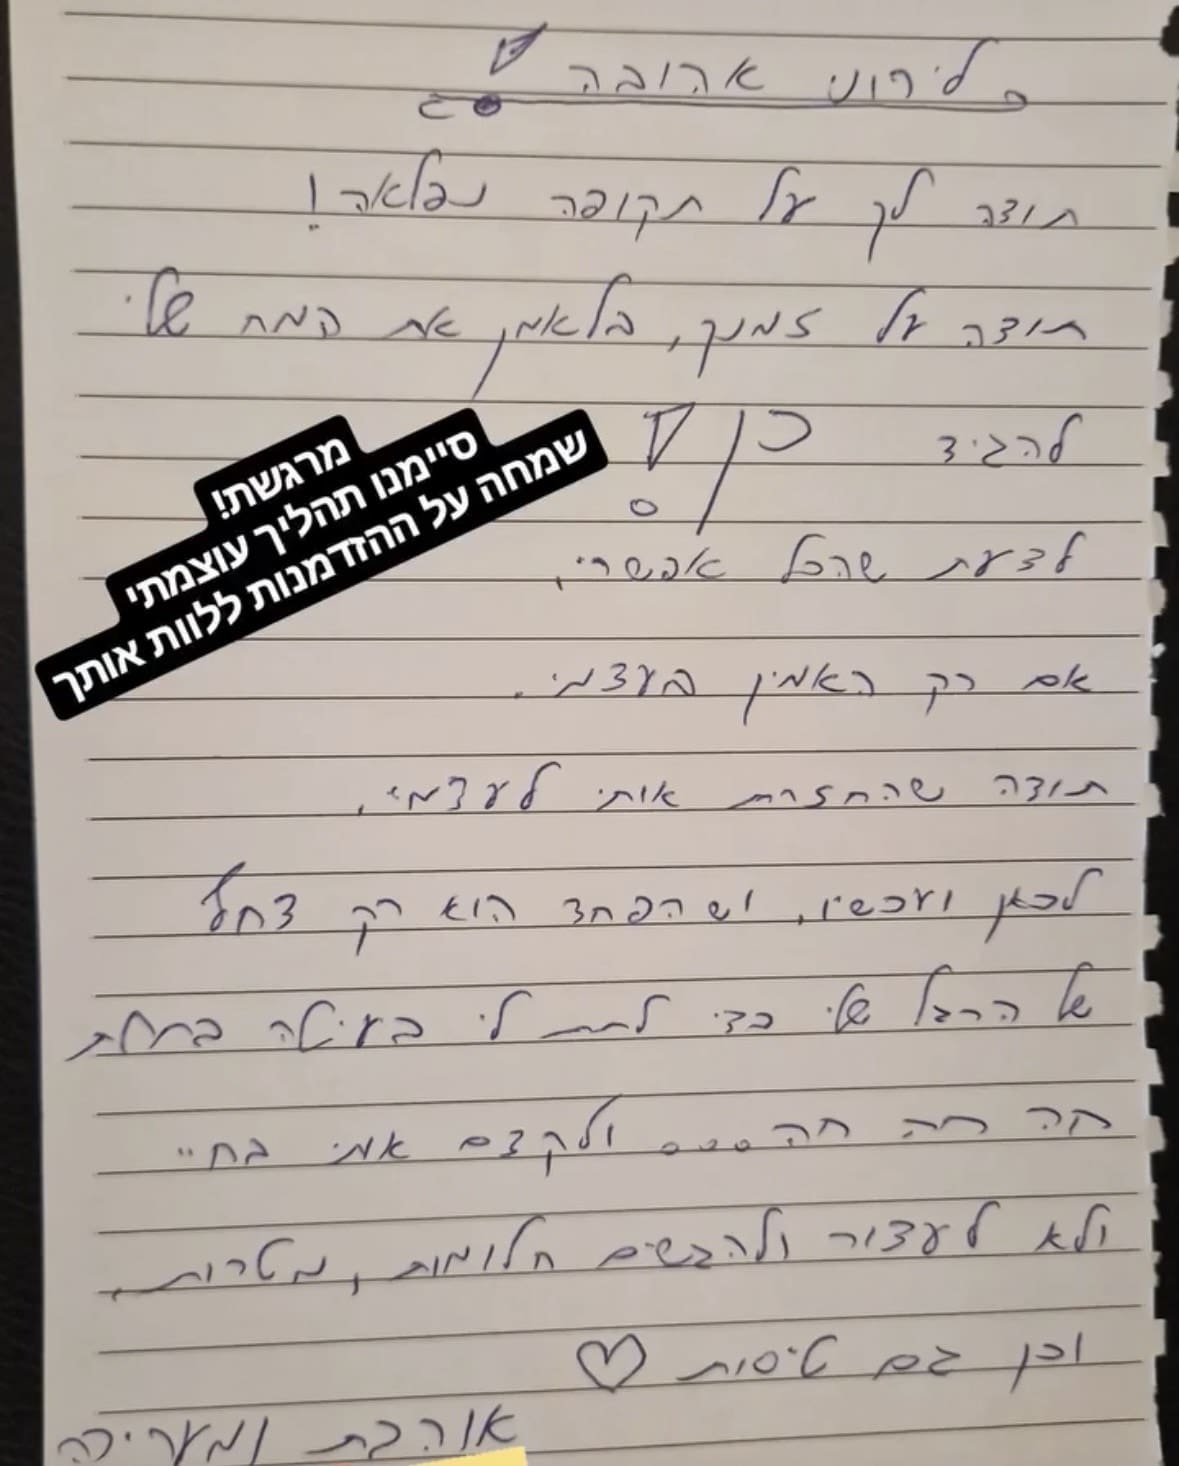 לירוני אהובה!
תודה לך על תקופה נפלאה!
תודה על זמנך, בלאמן את המח שלי
להגיד כן!
לדעת שהכל אפשרי,
אם רק האמין בעצמי.
תודה שהחזרת אותי לעצמי,
לכאן ועכשיו, ושהפחד הוא רק
של שלי כדי לתת לי בעיטה
חה חה חה... ולקדם אותי בחיי
ולא לעצור ולהגשים חלומות, מטרות,
וכן גם טיסות ♡
אוהבת ומעריכה
מרגשת!
סיימנו תהליך עוצמתי
שמחה על ההזדמנות ללוות אותך